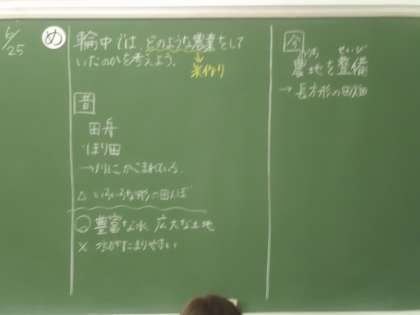 6/25
め
輪中では、どのような農業をして
いたのかを考えよう。
米作り
昔
田舟
ほり田
→川にかこまれている。
△ いろいろな形の田んぼ
豊富な水 広大な土地
× 水がたまりやすい
今
のうち せいび
農地を整備
→ 長方形の田んぼ